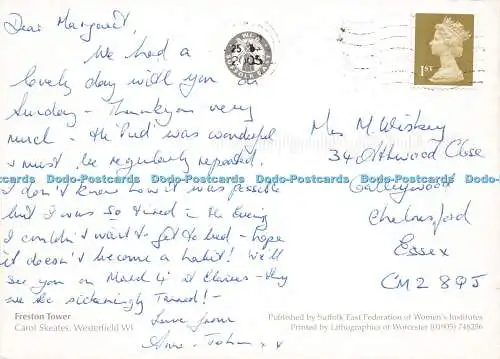 Dear Margaret,
We had a
lovely day with you on
Sunday - Thankyou very
much - the Pud was wonderful
& must be regularly repeated.
I don't know how it was possible
but I was so tired in the Evening
I couldn't wait to get to bed - hope
it doesn't become a habit! We'll
see you on March 4th at
they
are be sickeningly Tanned! -
Love from
Anne - John x x
25
2005
SUFFOLK
1ST
Mrs M. Wiskey
34 Close
Galleywood
Chelmsford
Essex
CM2 8QJ
Dodo-Postcards Dodo-Postcards Dodo-Postcards Dodo-Postcards Dodo-Postcards
Freston Tower
Carol Skeates, Westerfield WI
Published by Suffolk East Federation of Women's Institutes
Printed by Lithographics of Worcester (01905) 748256